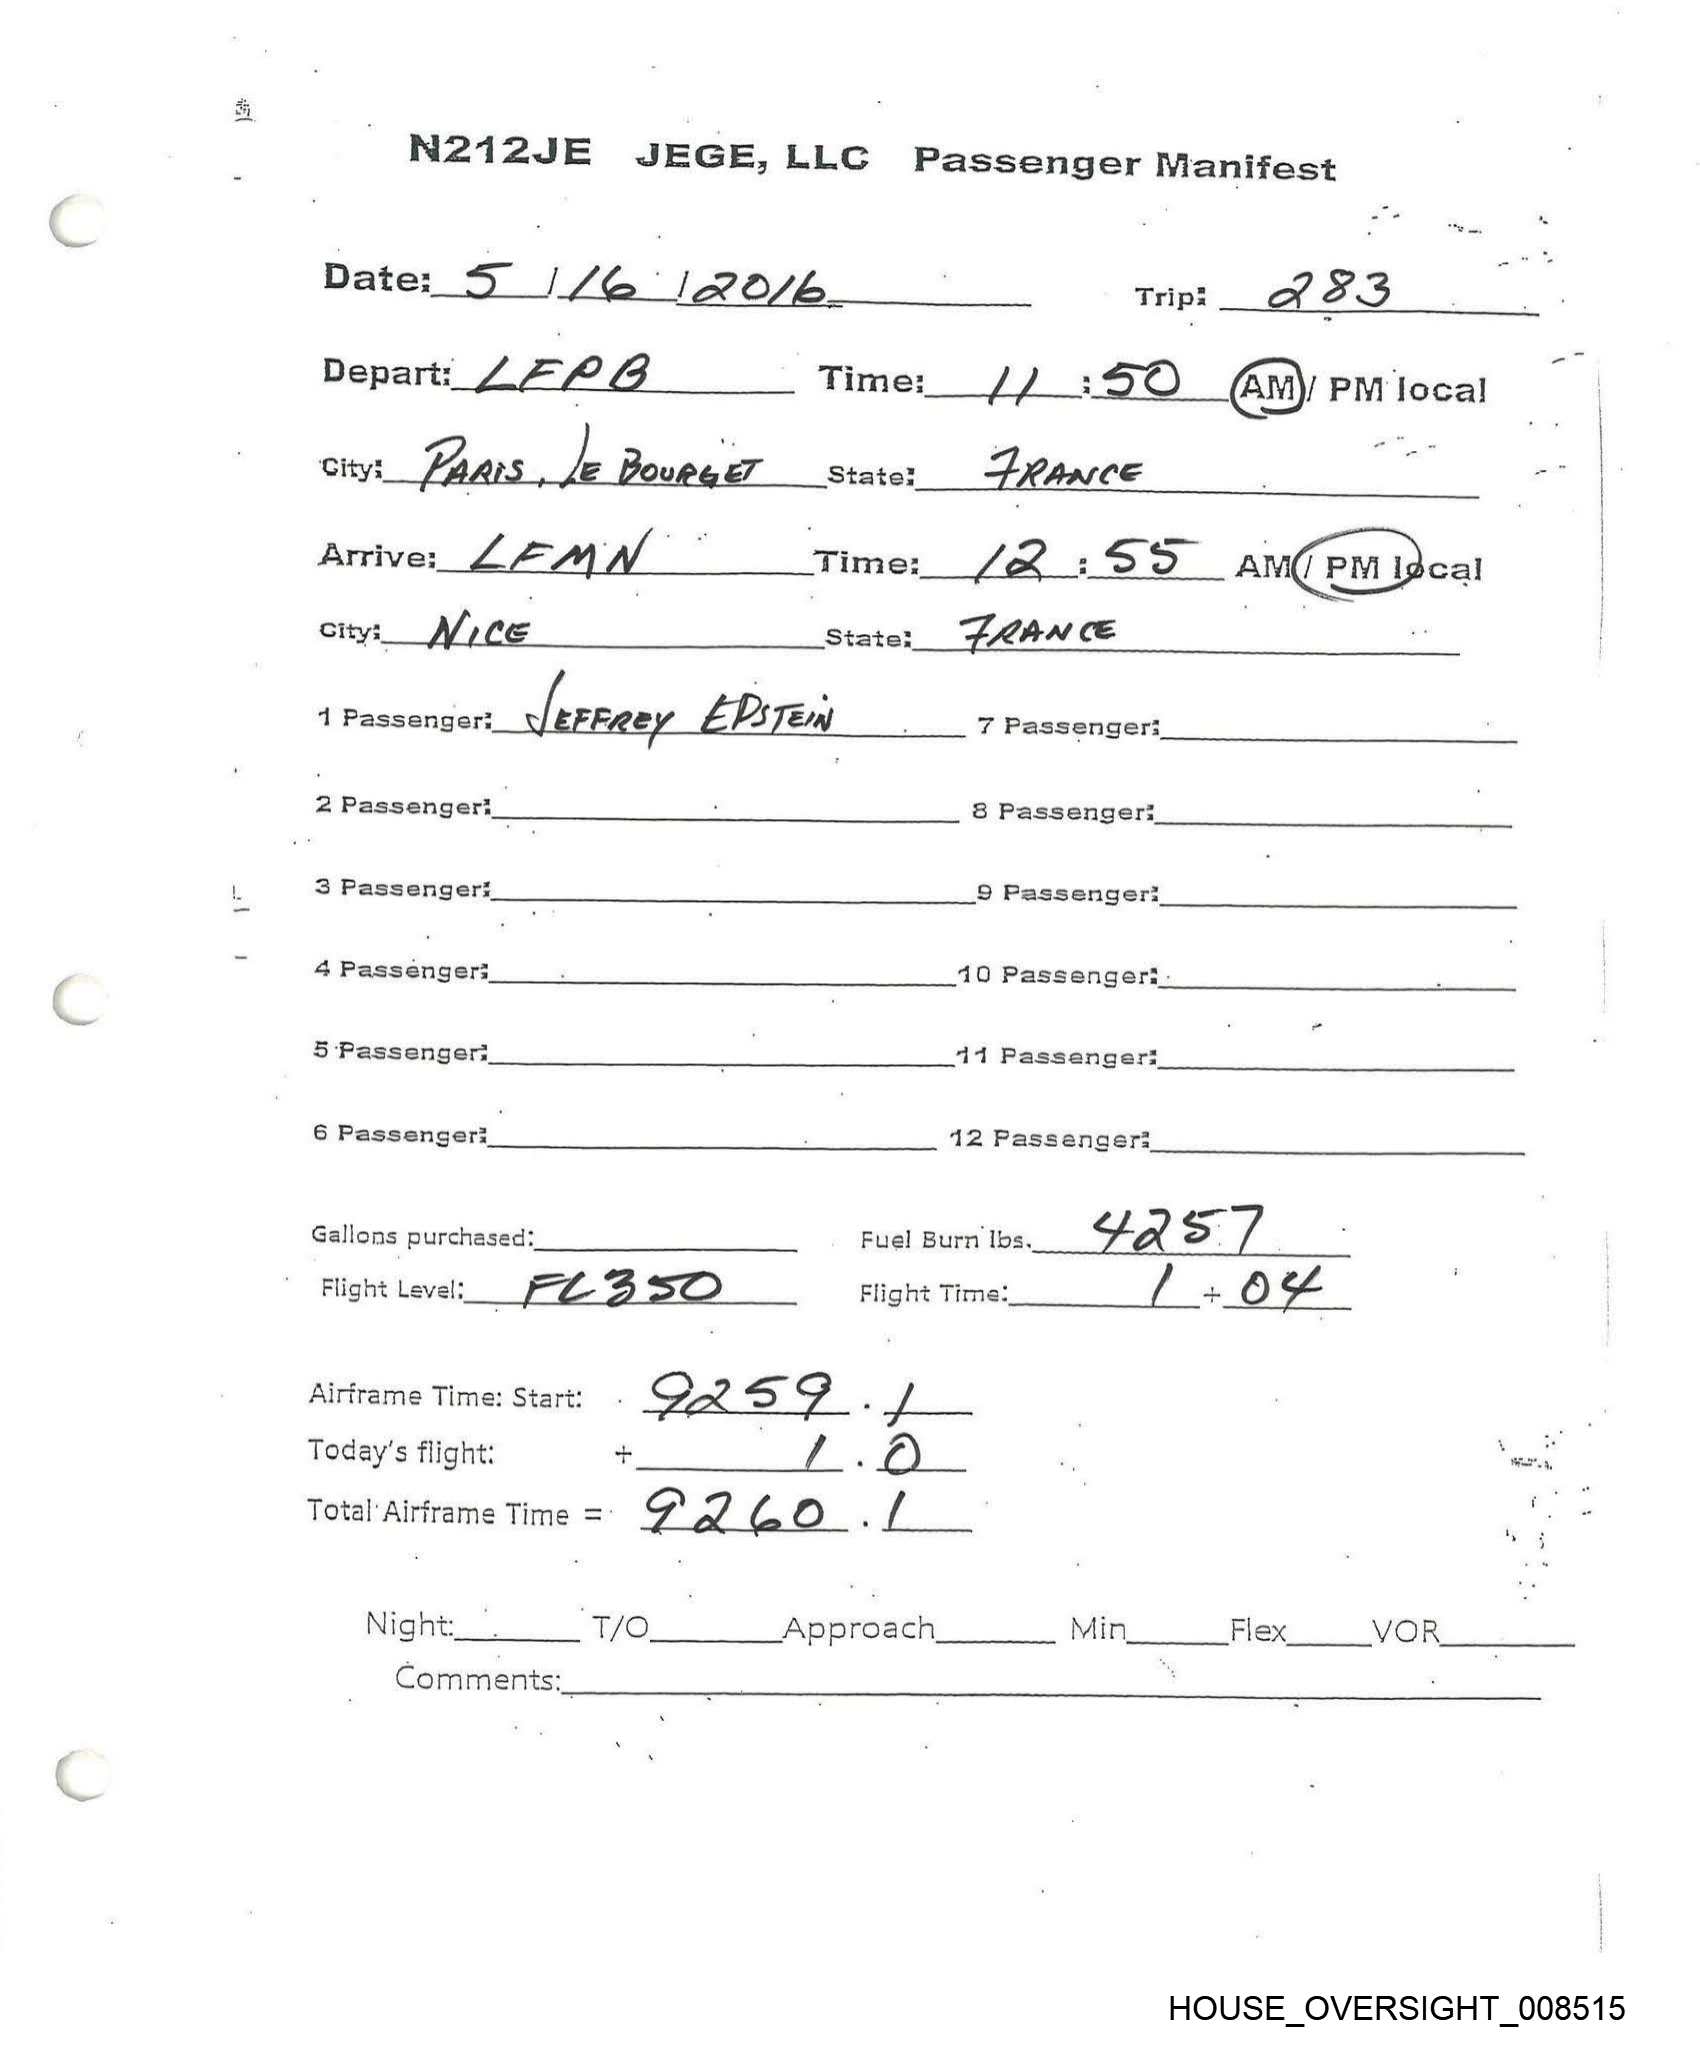 N212JE JEGE, LLC Passenger Manifest
Date: 5 / 16 / 2016 Trip: 283
Depart: LFPB Time: 11 : 50 AM / PM local
City: PARIS, LE BOURGET State: FRANCE
Arrive: LFMN Time: 12 : 55 AM / PM local
City: NICE State: FRANCE
1 Passenger: JEFFREY EPSTEIN 7 Passenger:
2 Passenger: 8 Passenger:
3 Passenger: 9 Passenger:
4 Passenger: 10 Passenger:
5 Passenger: 11 Passenger:
6 Passenger: 12 Passenger:
Gallons purchased: Fuel Burn lbs. 4257
Flight Level: FL350 Flight Time: 1 + 04
Airframe Time: Start: 9259 . 1
Today's flight: + 1 . 0
Total Airframe Time = 9260 . 1
Night: T/O Approach Min Flex VOR
Comments:
HOUSE_OVERSIGHT_008515